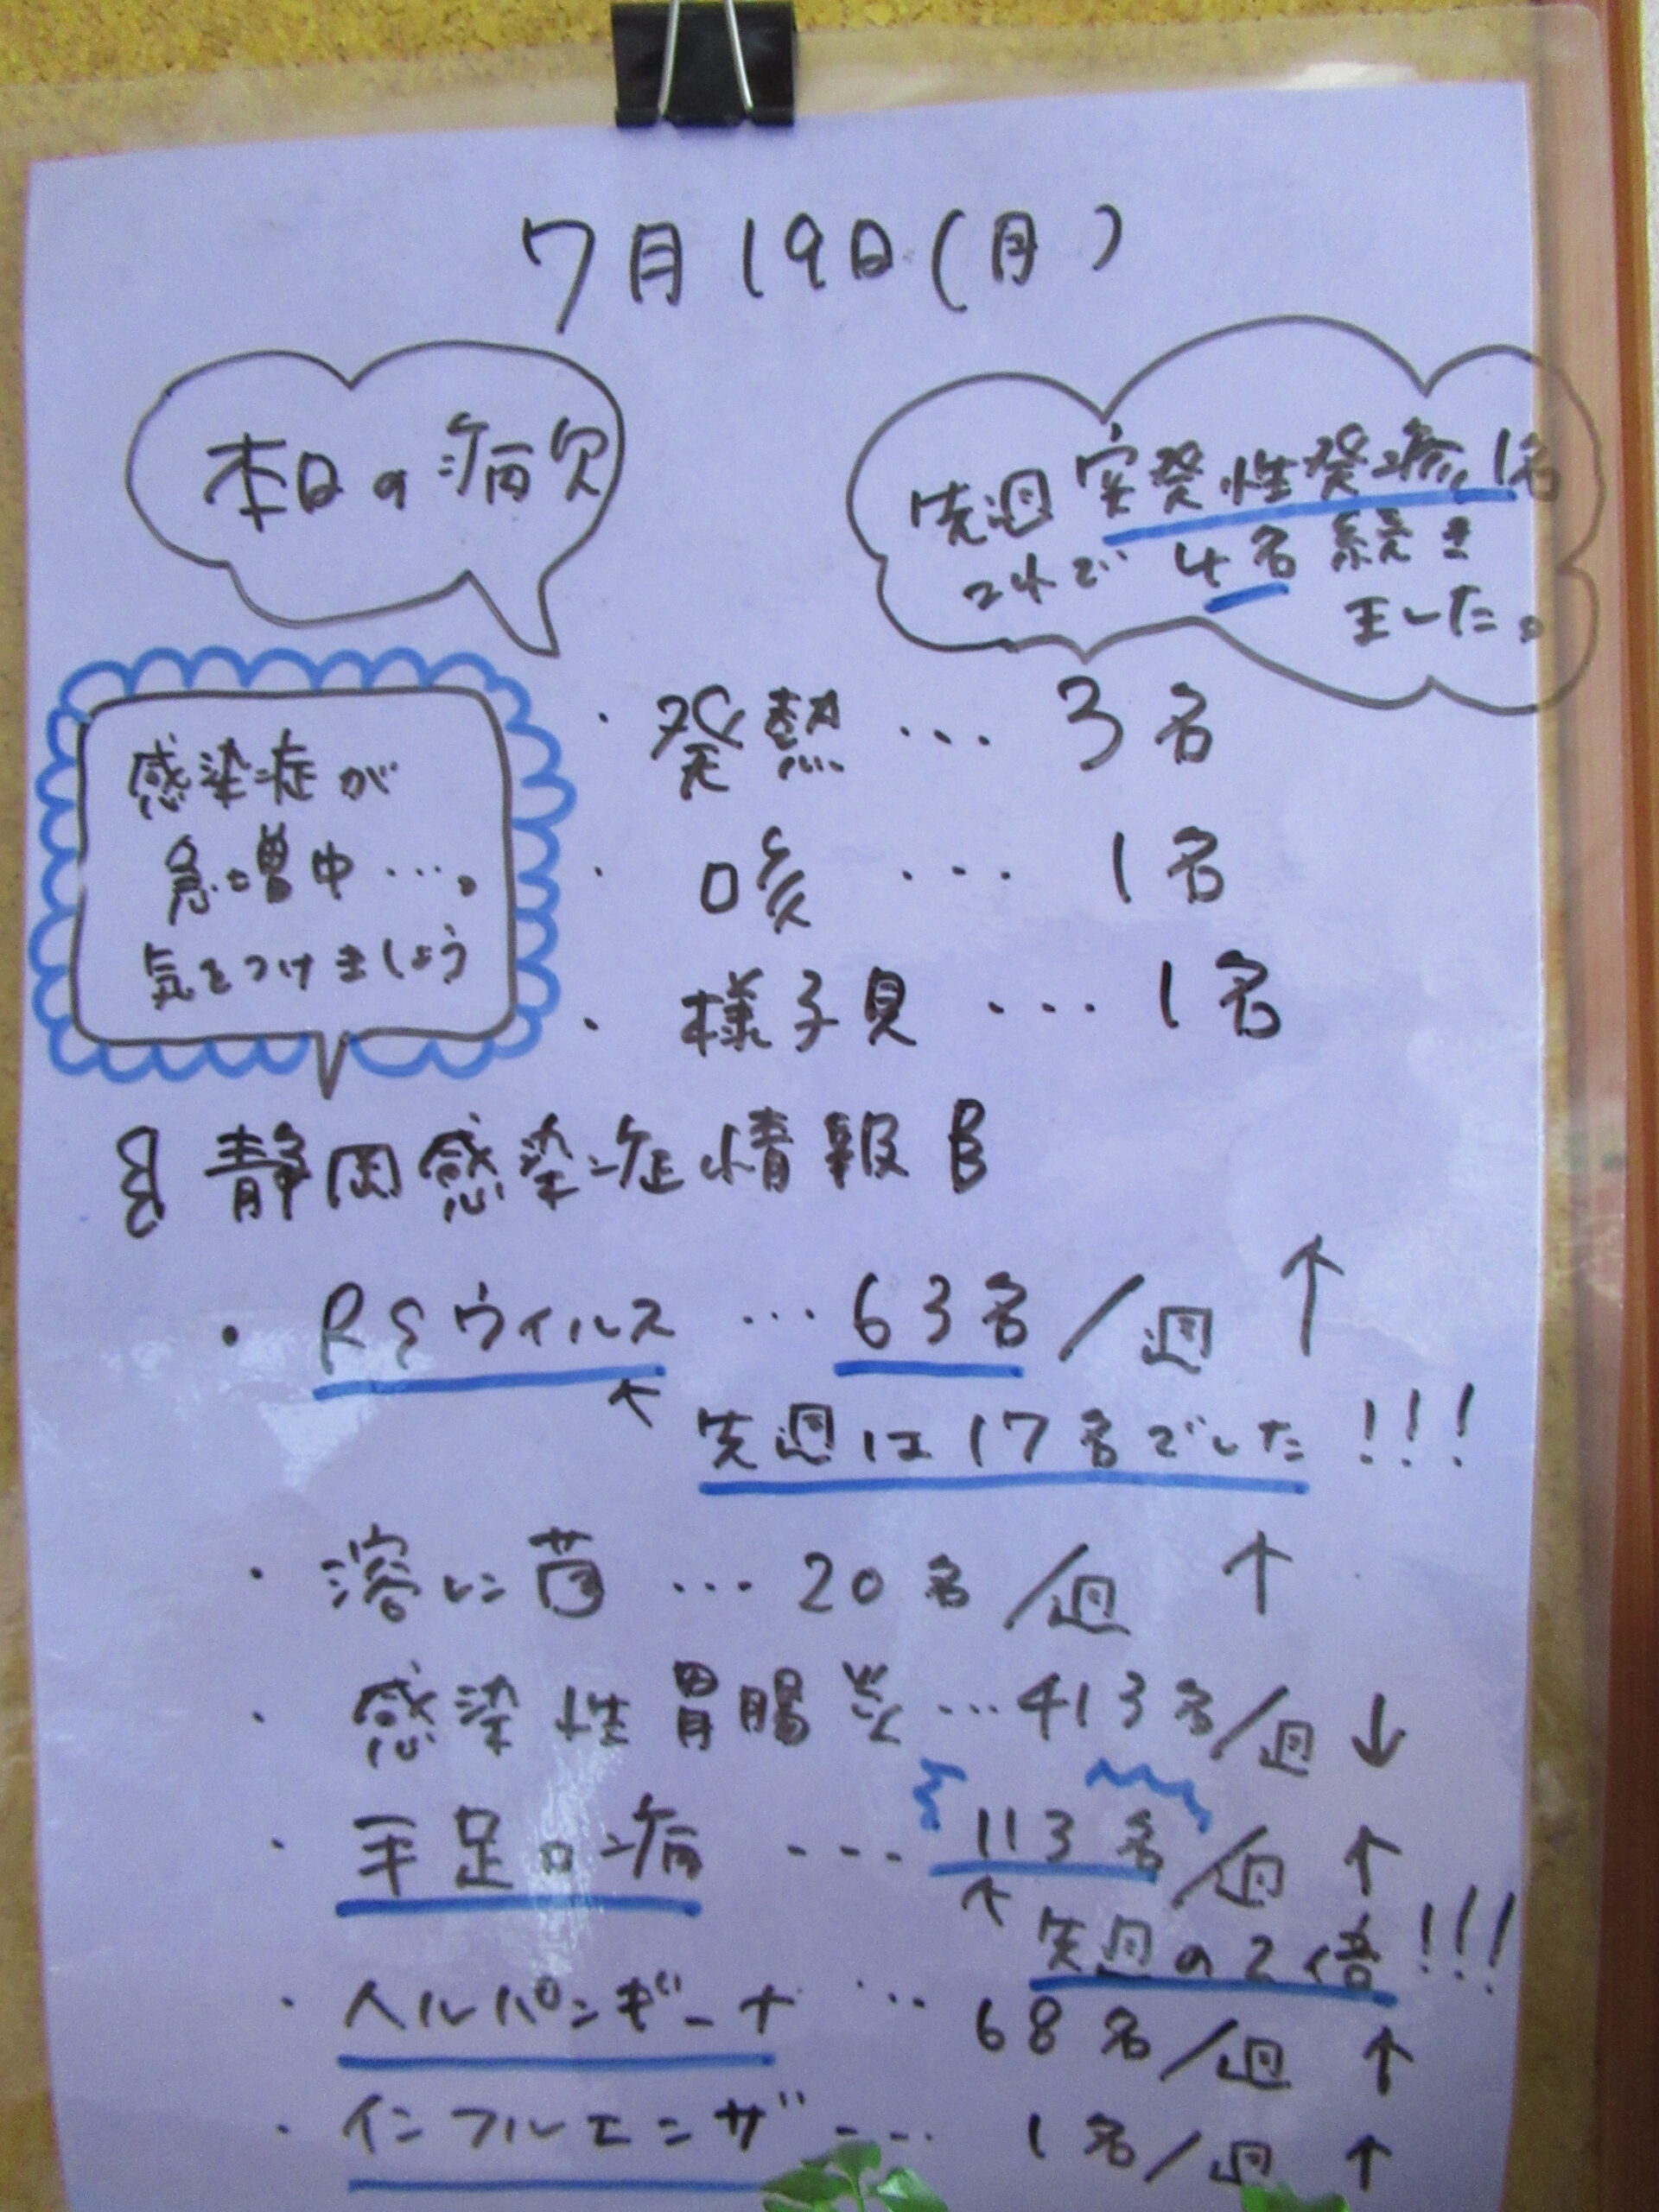 7月19日(月)
本日の病欠
先週突発性発疹1名
これで4名続き
ました。
・発熱…3名
・咳…1名
・様子見…1名
感染症が
急増中…。
気をつけましょう
静岡感染症情報
・RSウィルス…63名/週↑
先週は17名でした!!!
・溶レン菌…20名/週↑
・感染性胃腸炎…413名/週↓
・手足口病…113名/週↑
先週の2倍!!!
・ヘルパンギーナ…68名/週↑
・インフルエンザ…1名/週↑